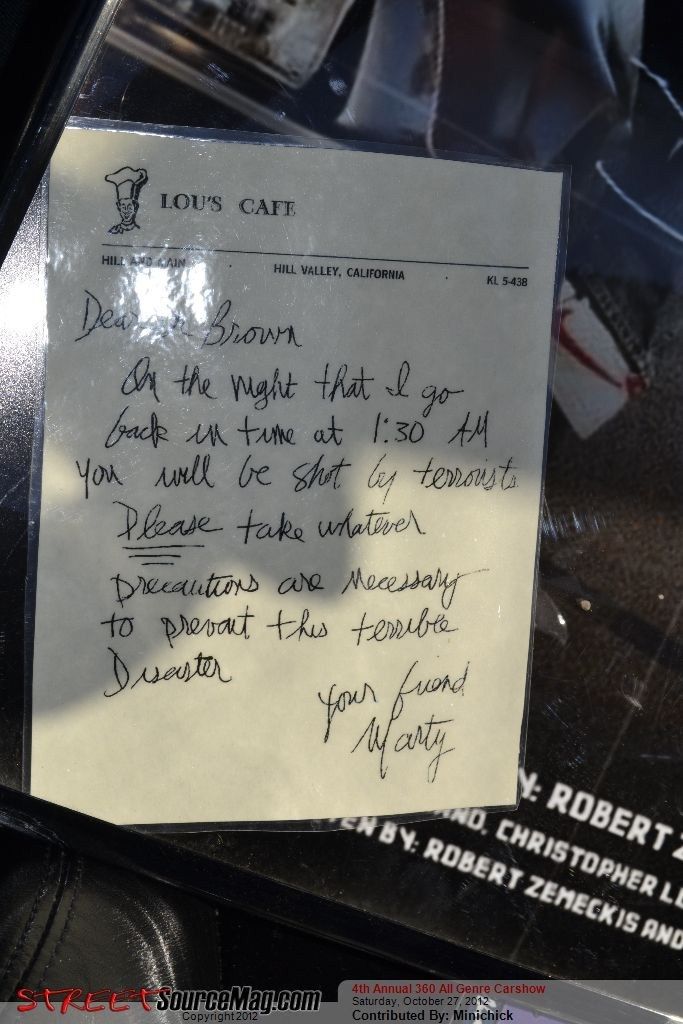 LOU'S CAFE
HILL AND MAIN HILL VALLEY, CALIFORNIA KL 5-438
Dear Dr Brown
On the night that I go
back in time at 1:30 AM
you will be shot by terrorists.
Please take whatever
precautions are necessary
to prevent this terrible
Disaster
Your friend
Marty
: ROBERT
AND, CHRISTOPHER
BY: ROBERT ZEMECKIS AND
STREETSourceMag.com
Copyright 2012
4th Annual 360 All Genre Carshow
Saturday, October 27, 2012
Contributed By: Minichick